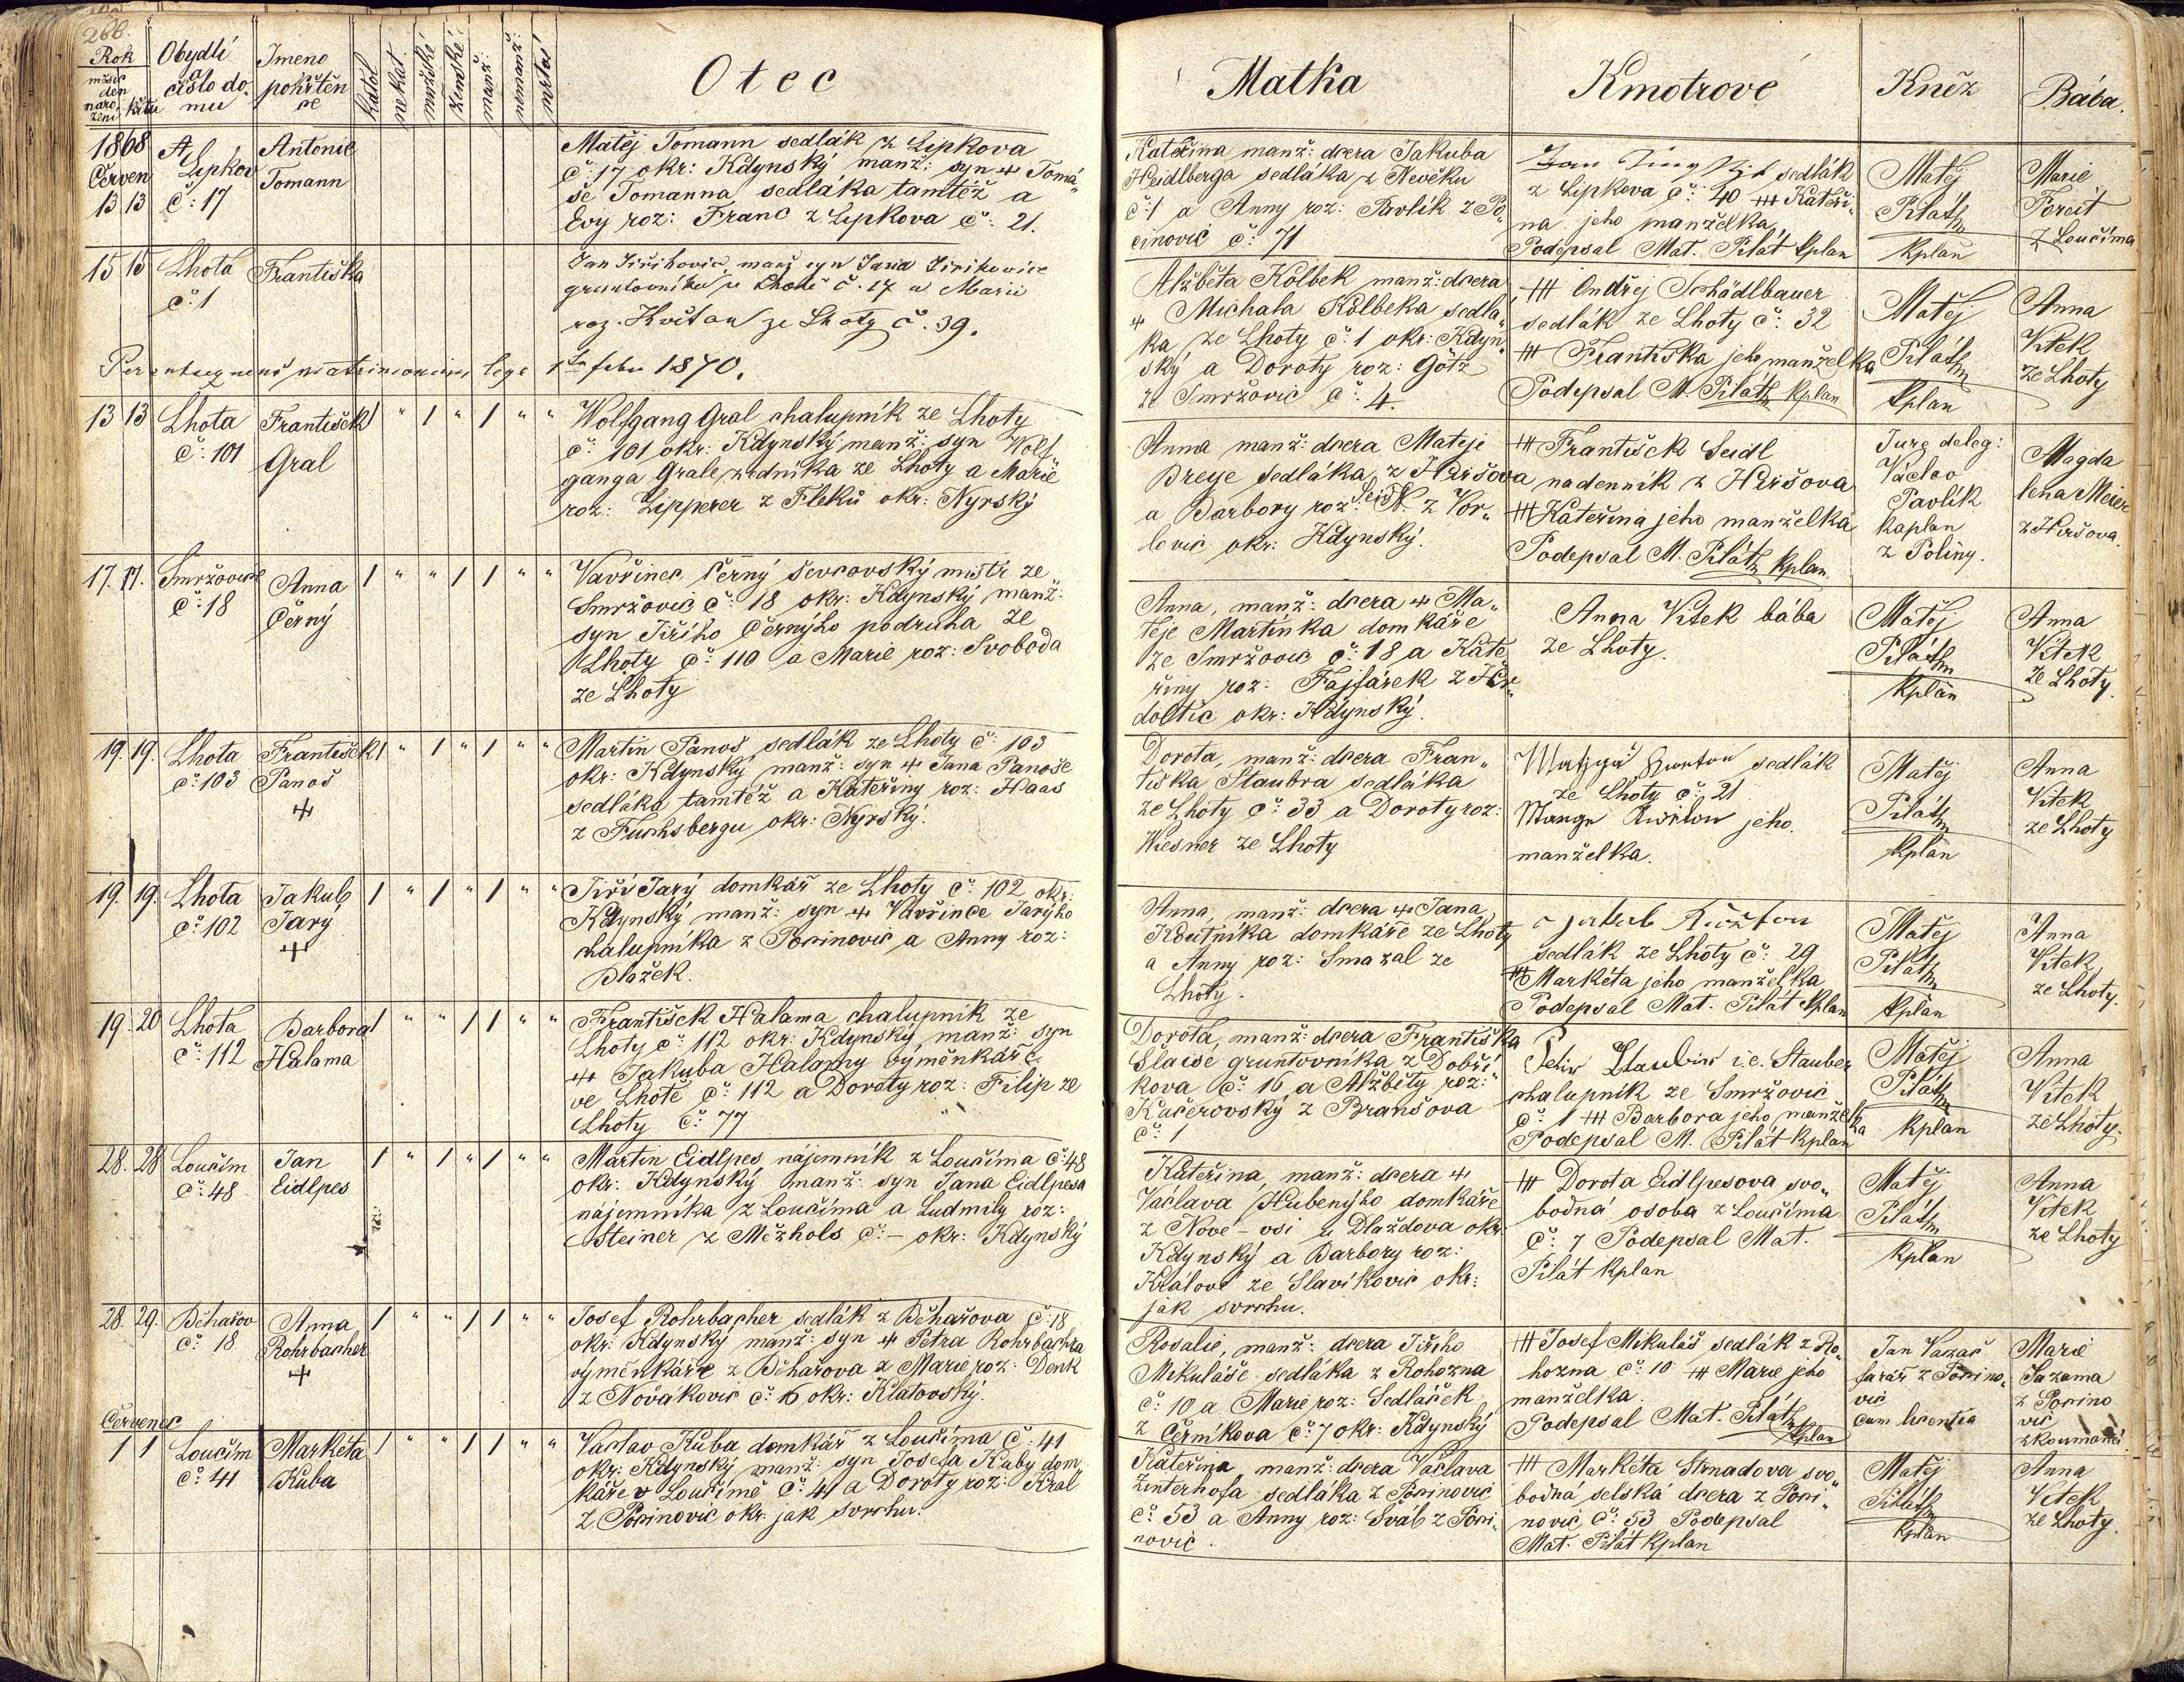 266.
Rok
měsíc
den
naro- křtu
zení
Obydlí
a
číslo do-
mu
Jmeno
pokřtěn
ce
katol
nekat.
mužské
ženské
manž:
nemanž:
mrtvé
Otec
Matka
Kmotrové
Kněz
Bába.
1868
Červen
13 13
A
Lipkov
č: 17
Antonie
Tomann
Matěj Tomann sedlák z Lipkova
č: 17 okr: Kdynský manž: syn + Tomá„
še Tomanna sedláka tamtéž a
Evy roz: Franc z Lipkova č: 21.
Kateřina manž: dcera Jakuba
Heidlberga sedláka z Nevěku
č: 1 a Anny roz: Pavlík z Po„
cinovic č: 71
sedlák
z Lipkova č: 40 +++ Kateři„
na jeho manželka
Podepsal Mat. Pilát kplan
Matěj
Pilát
kplan
Marie
Foreit
z Loučima
15 15
Lhota
č: 1
Františka
Jan Jiřikovic, manž syn Jana Jiřikovice
gruntovníka ze Lhotě č. 17 a Marii
roz. Květon ze Lhoty č. 39.
matrimonium
1870.
Alžběta Kolbek manž: dcera
+ Michala Kolbeka sedlá„
ka ze Lhoty č: 1 okr: Kdyn„
ský a Doroty roz: Götz
ze Smržovic č: 4.
+++ Ondřej Schädlbauer
sedlák ze Lhoty č: 32
+++ Františka jeho manželka
Podepsal M. Pilát kplan
Matěj
Pilát
kplan
Anna
Vítek
ze Lhoty
13 13
Lhota
č: 101
František
Gral
/ „ / „ / „ „
Wolfgang Gral chalupník ze Lhoty
č: 101 okr: Kdynský manž: syn Wolf„
ganga Grale zedníka ze Lhoty a Marie
roz: Lipperer z Fleků okr: Nyrský
Anna manž: dcera Matěje
Breye sedláka z Hiršova
a Barbory roz: N. z Vor„
lovic okr: Kdynský.
+++ František Seidl
nadenník z Hiršova
+++ Kateřina jeho manželka
Podepsal M. Pilát kplan
Jure deleg:
Václav
Pavlík
kaplan
z Poliny.
Magda
lena Meier
z Hiršova.
17. 17.
Smržovice
č: 18
Anna
Černý
/ „ „ / / „ „
Vavřinec Černý ševcovský mistr ze
Smržovic č: 18 okr: Kdynský manž:
syn Jiřího Černýho podruha ze
Lhoty č: 110 a Marie roz: Svoboda
ze Lhoty
Anna, manž: dcera + Ma„
těje Martínka domkáře
ze Smržovic č: 18 a Kate„
řiny roz: Fajfárek z Hr„
doltic okr: Kdynský.
Anna Vítek bába
ze Lhoty.
Matěj
Pilát
kplan
Anna
Vítek
ze Lhoty.
19. 19.
Lhota
č: 103
František
Panoš
+
/ „ / „ / „ „
Martin Panoš sedlák ze Lhoty č: 103
okr: Kdynský manž: syn + Jana Panoše
sedláka tamtéž a Kateřiny roz: Haas
z Fuchsbergu okr: Nyrský.
Dorota, manž: dcera Fran„
tiška Staubra sedláka
ze Lhoty č: 33 a Doroty roz:
Wiesner ze Lhoty
sedlák
ze Lhoty č: 21
jeho
manželka.
Matěj
Pilát
kplan
Anna
Vítek
ze Lhoty
19. 19.
Lhota
č: 102
Jakub
Jarý
+
/ „ / „ / „ „
Jiří Jarý domkář ze Lhoty č: 102 okr:
Kdynský manž: syn + Vavřince Jarýho
chalupníka z Pocinovic a Anny roz:
Blažek.
Anna, manž: dcera + Jana
Koutníka domkáře ze Lhoty
a Anny roz: Smazal ze
Lhoty.
Jakub Květon
sedlák ze Lhoty č: 29
+++ Markéta jeho manželka
Podepsal Mat. Pilát kplan
Matěj
Pilát
kplan
Anna
Vítek
ze Lhoty.
19. 20
Lhota
č: 112
Barbora
Halama
/ „ „ / / „ „
František Halama chalupník ze
Lhoty č: 112 okr: Kdynský, manž: syn
+ Jakuba Halamy výměnkáře
ve Lhotě č: 112 a Doroty roz: Filip ze
Lhoty č: 77
Dorota, manž: dcera Františka
Slaise gruntovníka z Dobří„
kova č: 16 a Alžběty roz:
Kučerovský z Branšova
č: 1
i.e. Stauber
chalupník ze Smržovic
č: 1 +++ Barbora jeho manželka
Podepsal M. Pilát kplan
Matěj
Pilát
kplan
Anna
Vítek
ze Lhoty.
28. 28
Loučim
č: 48
Jan
Eidlpes
/ „ / „ / „ „
Martin Eidlpes nájemník z Loučima č: 48
okr: Kdynský manž: syn Jana Eidlpesa
nájemníka z Loučima a Ludmily roz:
Steiner z Měžhols č: – okr: Kdynský
Kateřina, manž: dcera +
Václava Hubenýho domkáře
z Nové-vsi u Dlaždova okr:
Kdynský a Barbory roz:
Králové ze Slavíkovic okr:
jak svrchu.
+++ Dorota Eidlpesova svo„
bodná osoba z Loučima
č: 7 Podepsal Mat.
Pilát kplan
Matěj
Pilát
kplan
Anna
Vítek
ze Lhoty
28. 29.
Běhařov
č: 18
Anna
Rohrbacher
+
/ „ „ / / „ „
Josef Rohrbacher sedlák z Běhařova č: 18
okr: Kdynský manž: syn + Petra Rohrbachra
výměnkáře z Běhařova a Marie roz: Denk
z Novákovic č: 16 okr: Klatovský.
Rosalie, manž: dcera Jiřího
Mikuláše sedláka z Rohozna
č: 10 a Marie roz: Sedláček
z Černíkova č: 7 okr: Kdynský
+++ Josef Mikuláš sedlák z Ro„
hozna č: 10 +++ Marie jeho
manželka.
Podepsal Mat. Pilát
kplan
Jan Vazač
farář z Pocino„
vic
cum licentia
Marie
Sazama
z Pocino
vic
zkoumaná.
Červenec
1 1
Loučim
č: 41
Markéta
Kuba
/ „ „ / / „ „
Vaclav Kuba domkář z Loučima č: 41
okr: Kdynský manž: syn Josefa Kuby dom„
káře v Loučimě č: 41 a Doroty roz: Král
z Pocinovic okr: jak svrchu.
Kateřina manž: dcera Václava
Zinterhofa sedláka z Pocinovic
č: 53 a Anny roz: Šváb z Poci„
novic.
+++ Markéta Strnadova svo„
bodná selská dcera z Poci„
novic č: 53 Podepsal
Mat. Pilát kplan
Matěj
Pilát
kplan
Anna
Vítek
ze Lhoty.